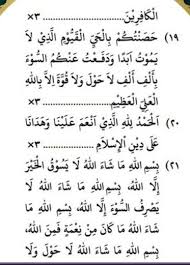 الْكَافِرِيْنَ ........................ ×٣
(١٩) حَصَّنْتُكُمْ بِالْحَيِّ الْقَيُّوْمِ الَّذِيْ لَا
يَمُوْتُ اَبَدًا وَدَفَعْتُ عَنْكُمُ السُّوْءَ
بِأَلْفِ أَلْفِ لَا حَوْلَ وَلَا قُوَّةَ اِلَّا بِاللهِ
الْعَلِيِّ الْعَظِيْمِ ........................ ×٣
(٢٠) اَلْحَمْدُ لِلّٰهِ الَّذِيْ اَنْعَمَ عَلَيْنَا وَهَدَانَا
عَلٰى دِيْنِ الْاِسْلَامِ .................. ×٣
(٢١) بِسْمِ اللهِ مَا شَاءَ اللهُ لَا يَسُوْقُ الْخَيْرَ
اِلَّا اللهُ، بِسْمِ اللهِ مَا شَاءَ اللهُ لَا
يَصْرِفُ السُّوْءَ اِلَّا اللهُ، بِسْمِ اللهِ مَا
شَاءَ اللهُ مَا كَانَ مِنْ نِعْمَةٍ فَمِنَ اللهِ،
بِسْمِ اللهِ مَا شَاءَ اللهُ لَا حَوْلَ وَلَا